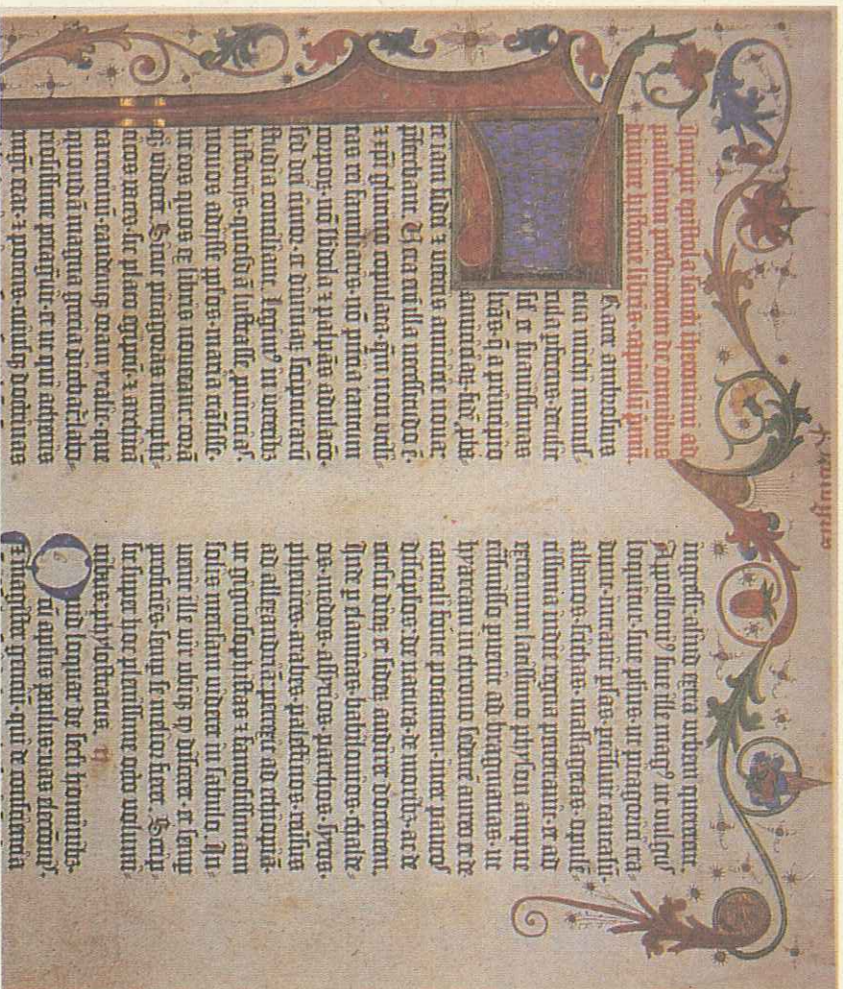 Incipit epistola sancti iheronimi ad
paulinum presbiterum de omnibus
diuine historie libris·capitulū pmū.
Frater ambrosius
tua michi munus=
cula pferens·detulit
sil' et suauissimas
lr̄as·q̄ a principio
amicicie·fidē pba=
te iam fidei ⁊ veteris amicicie noua:
pferebant. Vera eni illa necessitudo ē·
⁊ xpī glutino copulata·qm̄ non vtili=
tas rei familiaris·nō pn̄cia tantum
corporū·nō sbdola ⁊ palpās adulacō·
sed dei timor·et diuinaꝝ scripturarū
studia conciliant. Legim⁹ in veterib⁊
historijs·quosdā lustrasse puincias·
nouos adijsse pplos·maria trāsisse·
ut eos quos ex libris nouerant: corā
q⁊ viderēt. Sicut pitagoras memphi=
ticos vates·sic plato egiptū·⁊ architā
tarentinū·eandemq⁊ oram ytalie·que
quondā magna grecia dicebat̄: labo=
riosissime pagrauit·et ut qui athenis
mgr̄ erat·⁊ potens·cuiusq⁊ doctrinas
ingressi·aliud extra urbem quererent.
Apolloni⁹ siue ille mag⁹ ut vulgus
loquitur·siue phūs·ut pitagorici tra=
dunt·intrauit psas·ptransiuit caucasū·
albanos·scithas·massagetas·opulē=
tissima indie regna penetrauit·et ad
extremum latissimo physon amne
trāsmisso puenit ad bragmanas·ut
hyarcam in throno sedentē aureo et de
tantali fonte potantem·inter paucos
discipulos·de natura·de moribs·ac de
cursu dierū et siderū audiret docentem.
Inde p elamitas·babilonios·chalde=
os·medos·assyrios·parthos·syros·
phenices·arabes·palestinos·reuersus
ad allexandriā·perrexit ad ethiopiā·
ut gignosophistas ⁊ famosissimam
solis mensam videret in sabulo. In=
uenit ille vir ubiq⁊ qd disceret·et semp
proficiēs·semp se melior fieret. Scrip=
sit super hoc plenissime octo volumi=
nibus·phylostratus. II
Quid loquar de secli hominib⁊·
cū apl̄us paulus·vas electionis·
⁊ magister gentiū·qui de consciencia